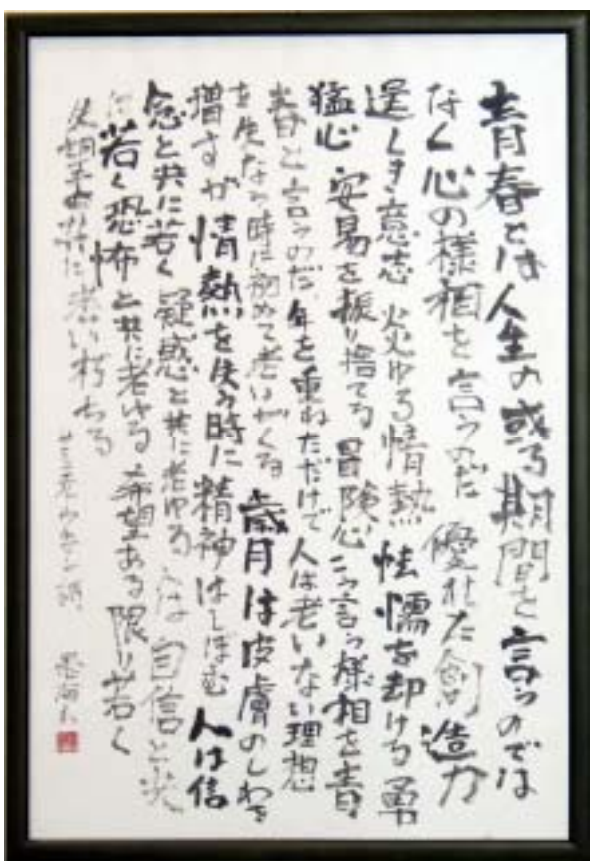 青春とは人生の或る期間を言うのでは
なく心の様相を言うのだ 優れた創造力
逞しき意志 炎ゆる情熱 怯懦を却ける勇
猛心 安易を振り捨てる冒険心 こう言う様相を青
春と言うのだ 年を重ねただけで人は老いない 理想
を失なう時に初めて老いがくる 歳月は皮膚のしわを
増すが情熱を失う時に精神はしぼむ 人は信
念と共に若く 疑惑と共に老ゆる 人は自信と共
に若く恐怖と共に老ゆる 希望ある限り若く
失望と共に老い朽ちる